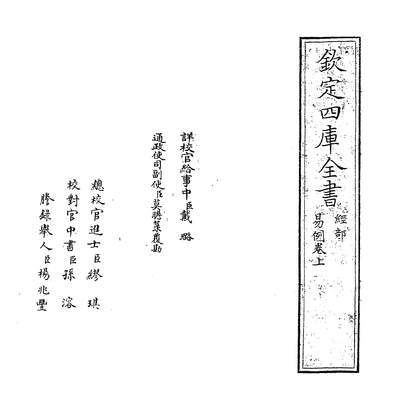 欽定四庫全書
經部
易例卷上
詳校官給事中臣戴璐
通政使司副使臣莫瞻菉覆勘
總校官進士臣繆琪
校對官中書臣孫溶
謄錄舉人臣楊兆豐